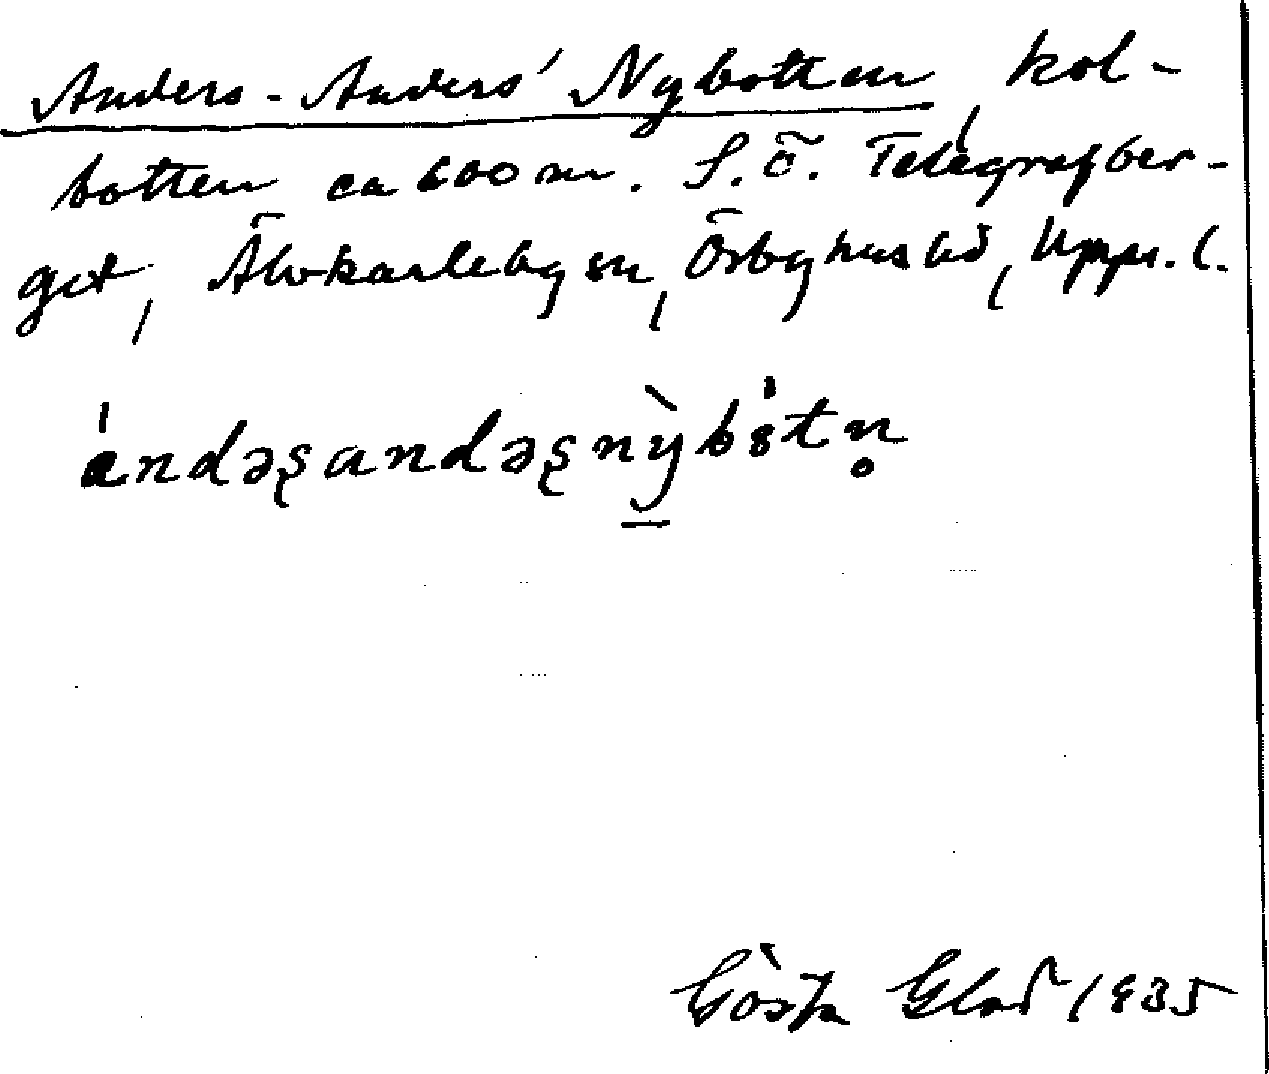 Anders-Anders' Nybotten, kol-
botten ca 600 m. S.Ö. Telegrafber-
get, Älvkarleby sn, Örbyhus hd, Upps. l.
andəʂandəʂnỳbòtn̥
Gösta Glad 1935